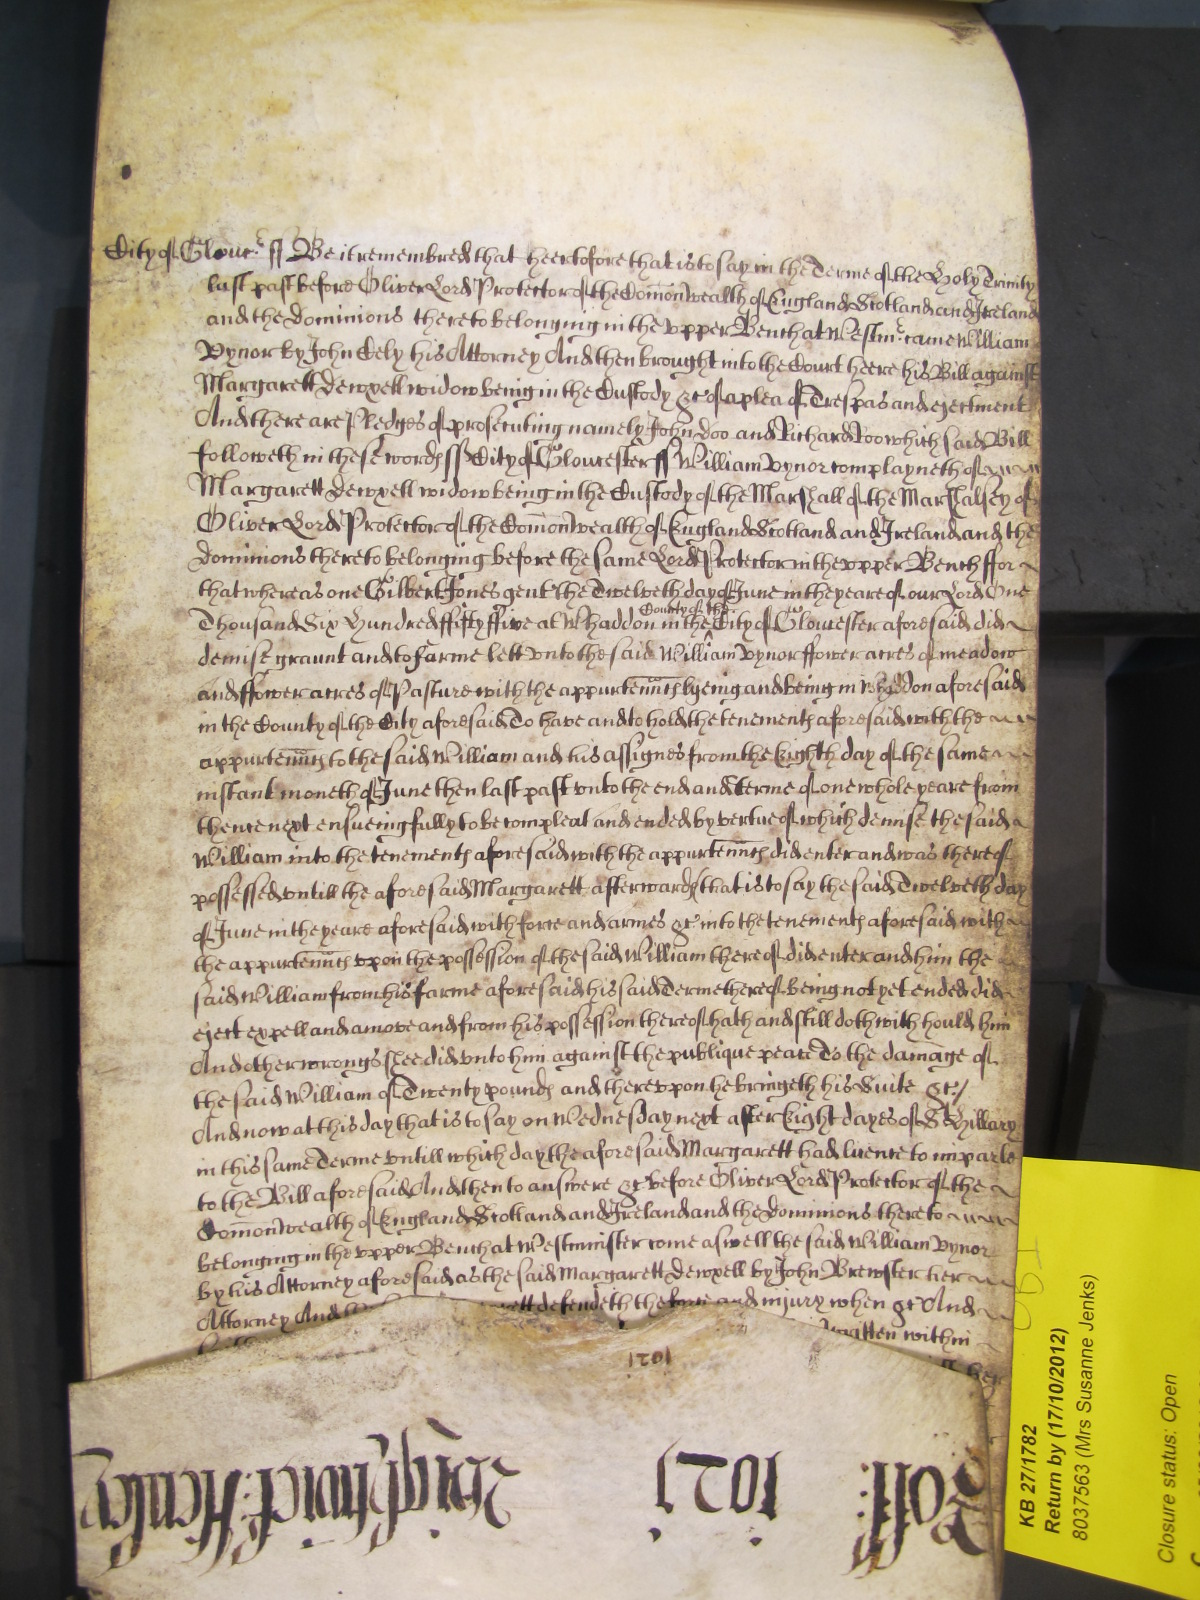 City of Glouc: ss Be it remembred that heertofore that is to say in the Terme of the Holy Trinity
last past before Oliver Lord Protector of the Com̄onwealth of England Scotland and Ireland
and the Dominions thereto belonging in the upper Bench at Westm̄: came William
Vynor by John Cely his Attorney And then brought into the Court heere his Bill against
Margarett Dewxell widow being in the Custody &c of a plea of Trespas and ejectment
And there are Pledges of prosecuting namely John Doo and Richard Roo which said Bill
followeth in these words ss City of Gloucester ss William Vynor complayneth of
Margarett Dewxell widow being in the Custody of the Marshall of the Marshalsey of
Oliver Lord Protector of the Com̄onwealth of England Scotland and Ireland and the
Dominions thereto belonging before the same Lord Protector in the upper Bench ffor
that whereas one Gilbert Jones gent the Twelveth day of June in the yeare of our Lord One
Thousand Six Hundred ffifty ffive at Whaddon in the County of the City of Gloucester aforesaid did
demise graunt and to farme lett unto the said William Vynor ffower acres of meadow
and ffower acres of Pasture with the appurten̄n̄ts lyeing and being in Whaddon aforesaid
in the County of the City aforesaid To have and to hold the tenements aforesaid with the
appurten̄n̄ts to the said William and his assignes from the Eighth day of the same
instant moneth of June then last past unto the end and terme of one whole yeare from
thence next ensueing fully to be compleat and ended by vertue of which demise the said
William into the tenements aforesaid with the appurten̄n̄ts did enter and was thereof
possessed untill the aforesaid Margarett afterwards that is to say the said Twelveth day
of June in the yeare aforesaid with force and armes &c into the tenements aforesaid with
the appurten̄n̄ts upon the possession of the said William thereof did enter and him the
said William from his farme aforesaid his said Terme thereof being not yet ended did
eject expell and amove and from his possession thereof hath and still doth with hould him
And other wrongs shee did unto him against the publique peace To the damage of
the said William of Twenty pounds and thereupon he bringeth his Suite &c/
And now at this day that is to say on Wednesday next after Eight dayes of St Hillary
in this same Terme untill which day the aforesaid Margarett had licence to imparle
to the Bill aforesaid And then to answere &c before Oliver Lord Protector of the
Com̄onwealth of England Scotland and Ireland and the Dominions thereto
belonging in the upper Bench at Westminster come aswell the said William Vynor
by his Attorney aforesaid as the said Margarett Dewxell by John Brewster her
Attorney And defendeth the force and injury when &c And
written within
her
1021
Roll: 1021
KB 27/1782
Return by (17/10/2012)
8037563 (Mrs Susanne Jenks)
Closure status: Open